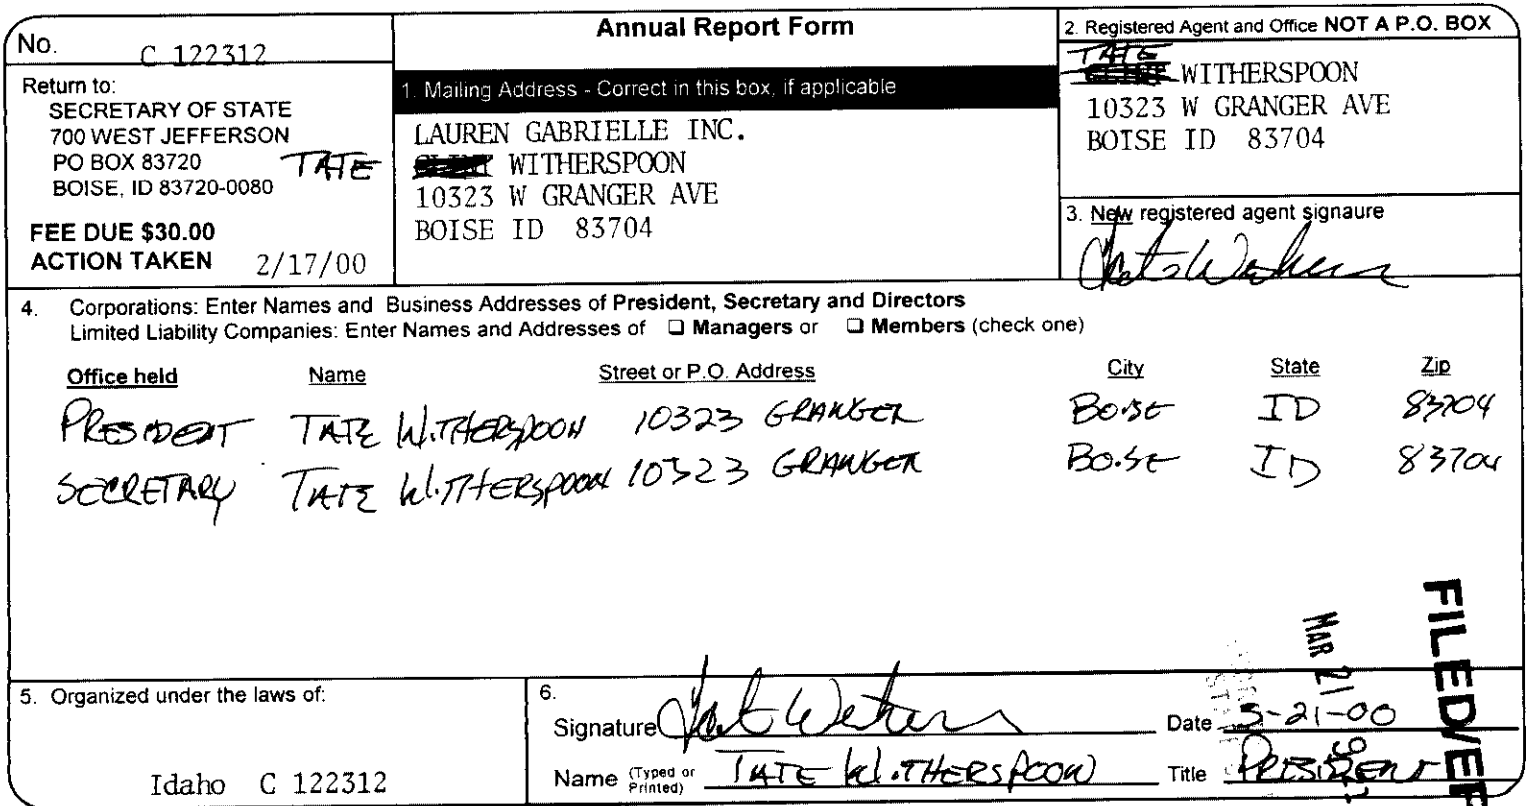 No. C 122312
Return to:
SECRETARY OF STATE
700 WEST JEFFERSON
PO BOX 83720
BOISE, ID 83720-0080
FEE DUE $30.00
ACTION TAKEN 2/17/00
Annual Report Form
1. Mailing Address - Correct in this box, if applicable
LAUREN GABRIELLE INC.
TATE WITHERSPOON
10323 W GRANGER AVE
BOISE ID 83704
2. Registered Agent and Office NOT A P.O. BOX
TATE
WITHERSPOON
10323 W GRANGER AVE
BOISE ID 83704
3. New registered agent signaure
4. Corporations: Enter Names and Business Addresses of President, Secretary and Directors
Limited Liability Companies: Enter Names and Addresses of ❑ Managers or ❑ Members (check one)
Office held Name Street or P.O. Address City State Zip
PRESIDENT TATE WITHERSPOON 10323 GRANGER BOISE ID 83704
SECRETARY TATE WITHERSPOON 10323 GRANGER BOISE ID 83704
5. Organized under the laws of:
Idaho C 122312
6.
Signature Date 3-21-00
Name (Typed or Printed) TATE WITHERSPOON Title PRESIDENT
MAR 21
FILED